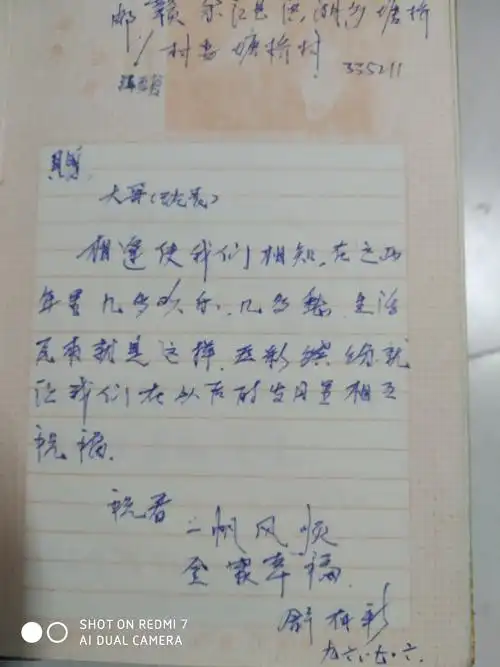 赣余江县洪湖乡塘桥
村委塘桥村
335211
赠
大哥
相逢使我们相知,在这两
年里几多欢乐,几多愁,生活
원来就是这样,五彩缤纷就
让我们在以后的岁月里相互
祝福.
祝君
一帆风顺
全家幸福.
九六.七.六.
SHOT ON REDMI 7
AI DUAL CAMERA